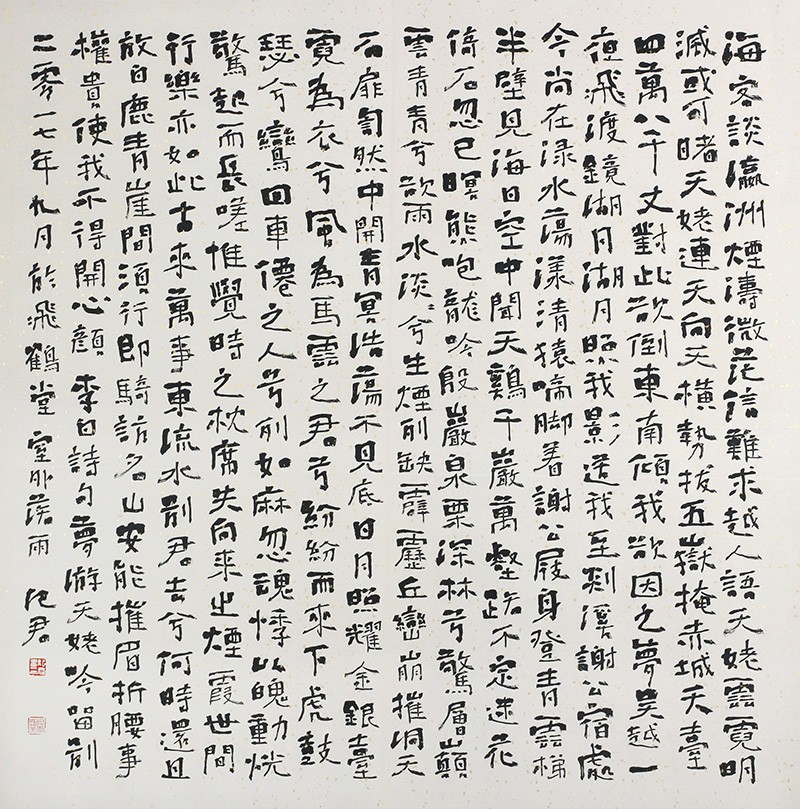 海客談瀛洲煙濤微茫信難求越人語天姥雲霓明
滅或可睹天姥連天向天橫勢拔五嶽掩赤城天臺
四萬八千丈對此欲倒東南傾我欲因之夢吳越一
夜飛渡鏡湖月湖月照我影送我至剡溪謝公宿處
今尚在淥水蕩漾清猿啼脚著謝公屐身登青雲梯
半壁見海日空中聞天鷄千巖萬壑路不定迷花
倚石忽已暝熊咆龍吟殷巖泉栗深林兮驚層巔
雲青青兮欲雨水淡淡兮生煙列缺霹靂丘巒崩摧洞天
石扉訇然中開青冥浩蕩不見底日月照耀金銀臺
霓為衣兮風為馬雲之君兮紛紛而來下虎鼓
瑟兮鸞回車僊之人兮列如麻忽魂悸以魄動恍
驚起而長嗟惟覺時之枕席失向來之煙霞世間
行樂亦如此古來萬事東流水別君去兮何時還且
放白鹿青崖間須行即騎訪名山安能摧眉折腰事
權貴使我不得開心顏 李白詩句夢游天姥吟留別
二零一七年九月於飛鶴堂窗外落雨 君